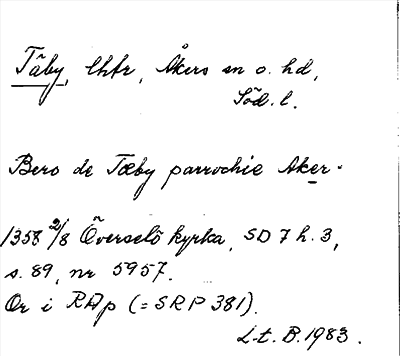 Täby, lhtr, Åkers sn o. hd,
Söd. l.
Bero de Tæby parrochie Aker.
1358 2/8 Överselö kyrka, SD 7 h. 3,
s. 89, nr 5957.
Or i RAp (= SRP 381).
L-t. B. 1983.